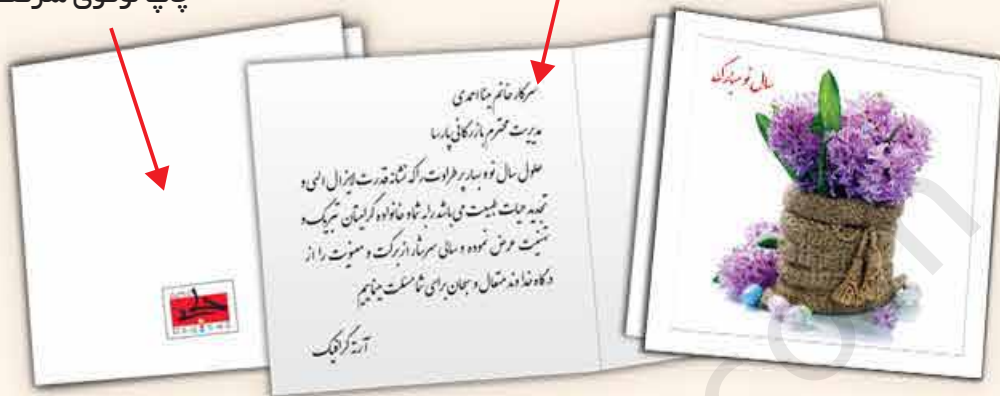 چاپ لوگوی شرکت
سال نو مبارک
سرکار خانم مینا احمدی
مدیریت محترم بازرگانی پارسا
حلول سال نو و بهار پر طراوت را که نشانه قدرت لایزال الهی و
تجدید حیات طبیعت می باشد را به شما و خانواده گرامیتان تبریک و
تهنیت عرض نموده و سالی سرشار از برکت و معنویت را از
درگاه خداوند متعال و سبحان برای شما مسئلت مینماییم
آرته گرافیک
com